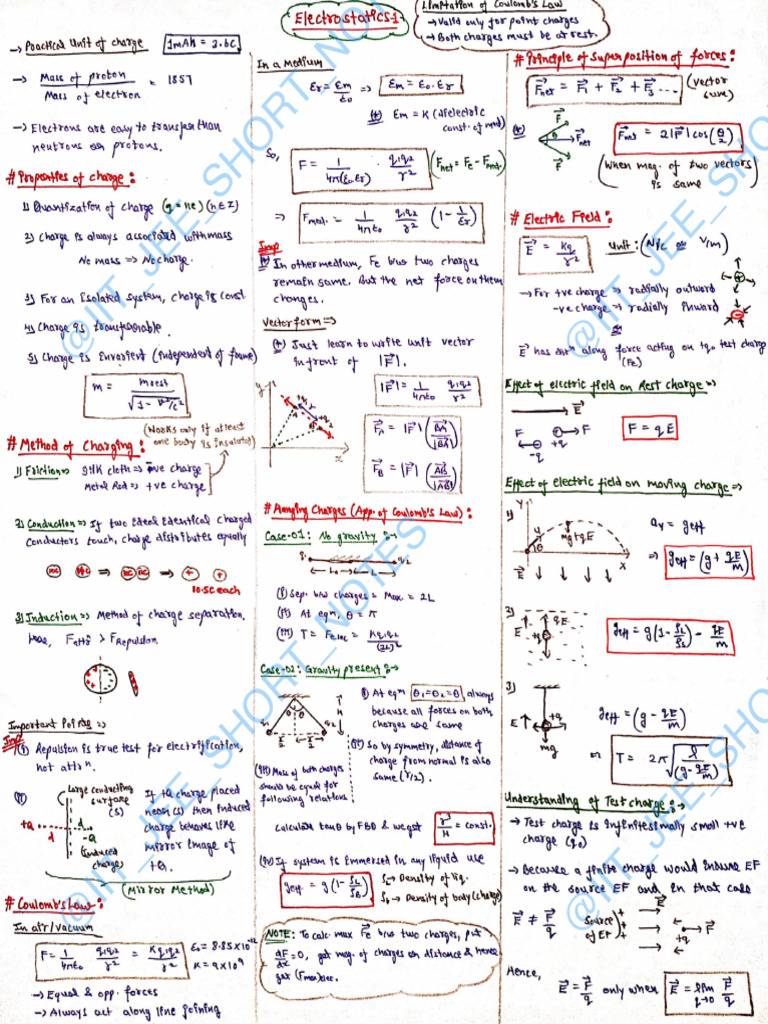 Electrostatics-1
→ Practical Unit of charge 1mAh = 3.6C
→ Mass of proton / Mass of electron = 1837
→ Electrons are easy to transfer than
neutrons or protons.
# Properties of charge:
1) Quantization of charge (q = ne) (n∈Z)
2) Charge is always associated with mass
No mass => No charge.
3) For an isolated system, charge is const.
4) Charge is transferable.
5) Charge is Invarient (independent of frame)
m = m rest / √(1 - v²/c²)
# Method of Charging:
(Works only if atleast
one body is insulator)
1) Friction => Silk cloth → -ve charge
Metal Rod → +ve charge
2) Conduction => If two Ideal Identical charged
conductors touch, charge distributes equally
10.5C each
3) Induction => Method of charge separation.
Here, F attrⁿ > F Repulsion.
Important Points =>
Imp
(i) Repulsion is true test for electrification,
not attrⁿ.
(ii) Large conducting
surface
(S)
+Q d d -Q
(induced
charge)
If +Q charge placed
near (s) then induced
charge behaves like
mirror image of
+Q.
(Mirror Method)
# Coulomb's Law:
In air/vacuum
F = 1/4πε₀ q₁q₂/r² = Kq₁q₂/r²
ε₀ = 8.85×10⁻¹²
K = 9×10⁹
→ Equal & opp. forces
→ Always act along line joining
In a Medium
εr = εm/ε₀ => εm = ε₀.εr
(*) εm = K (dielectric
const. of med)
So,
F = 1/4π(ε₀.εr) . q₁q₂/r²
(Fnet = Fe - Fmed.)
=> Fmed. = 1/4πε₀ q₁q₂/r² (1 - 1/εr)
Imp
(*) In other medium, Fe b/w two charges
remain same. But the net force on them
changes.
Vector form =>
(*) Just learn to write unit vector
infront of |F⃗|.
y x A B q₁ q₂
|F⃗| = 1/4πε₀ q₁q₂/r²
F⃗A = |F⃗| (B⃗A/|B⃗A|)
F⃗B = |F⃗| (A⃗B/|A⃗B|)
# Hanging Charges (App. of Coulomb's Law):
Case-01: No gravity :→
q₁ q₂
← L → ← L →
(i) Sep. b/w charges = Max = 2L
(ii) At eqm, θ = π
(iii) T = Fe = Kq₁q₂/(2L)²
Case-02: Gravity present :→
θ θ H q₁ q₂ r/2 r/2
(i) At eqm θ₁=θ₂=θ always
because all forces on both
charges are same
(ii) So by symmetry, distance of
charge from normal is also
same (r/2)
(iii) Mass of both charges
should be equal for
following relations
Calculate tanθ by FBD & we get r³/H = const.
(iv) If system is immersed in any liquid use
geff = g(1 - SL/SB)
SL → Density of liq.
Sb → Density of body (charge)
NOTE: To calc. max Fe b/w two charges, put
dF/dx = 0, get mag. of charges or distance & hence
get (Fmax)elec.
Limitation of Coulomb's Law
→ Valid only for point charges
→ Both charges must be at rest.
# Principle of superposition of forces:
F⃗net = F⃗1 + F⃗2 + F⃗3 .... (vector
sum)
(*) F⃗ θ F⃗net F⃗
F⃗net = 2|F⃗|cos(θ/2)
(When mag. of two vectors
is same)
# Electric Field:
E⃗ = Kq/r² Unit: (N/C or V/m)
→ For +ve charge → radially outward
-ve charge → radially inward
or
E⃗ has dirⁿ along force acting on +q₀ test charge
(Fe)
Effect of electric field on Rest charge =>
E⃗
F -q +q F
F = qE
Effect of electric field on moving charge =>
1) y u θ mg+qE x E⃗
ay = geff
=> geff = (g + qE/m)
2) E +q E
geff = g(1 - SL/Ss) - qE/m
3) E +q mg
geff = (g - qE/m)
=> T = 2π √(l/(g - qE/m))
Understanding of Test charge :→
→ Test charge is infinitesimally small +ve
charge (q₀)
→ Because a finite charge would induce EF
on the source EF and in that case
E⃗ ≠ F⃗/q
Source
of EF
E⃗ +q F⃗ E⃗
Hence,
E⃗ = F⃗/q only when E⃗ = lim q→0 F⃗/q
@IIT_JEE_SHORT_NOTES
@IIT_JEE_SHORT_NOTES